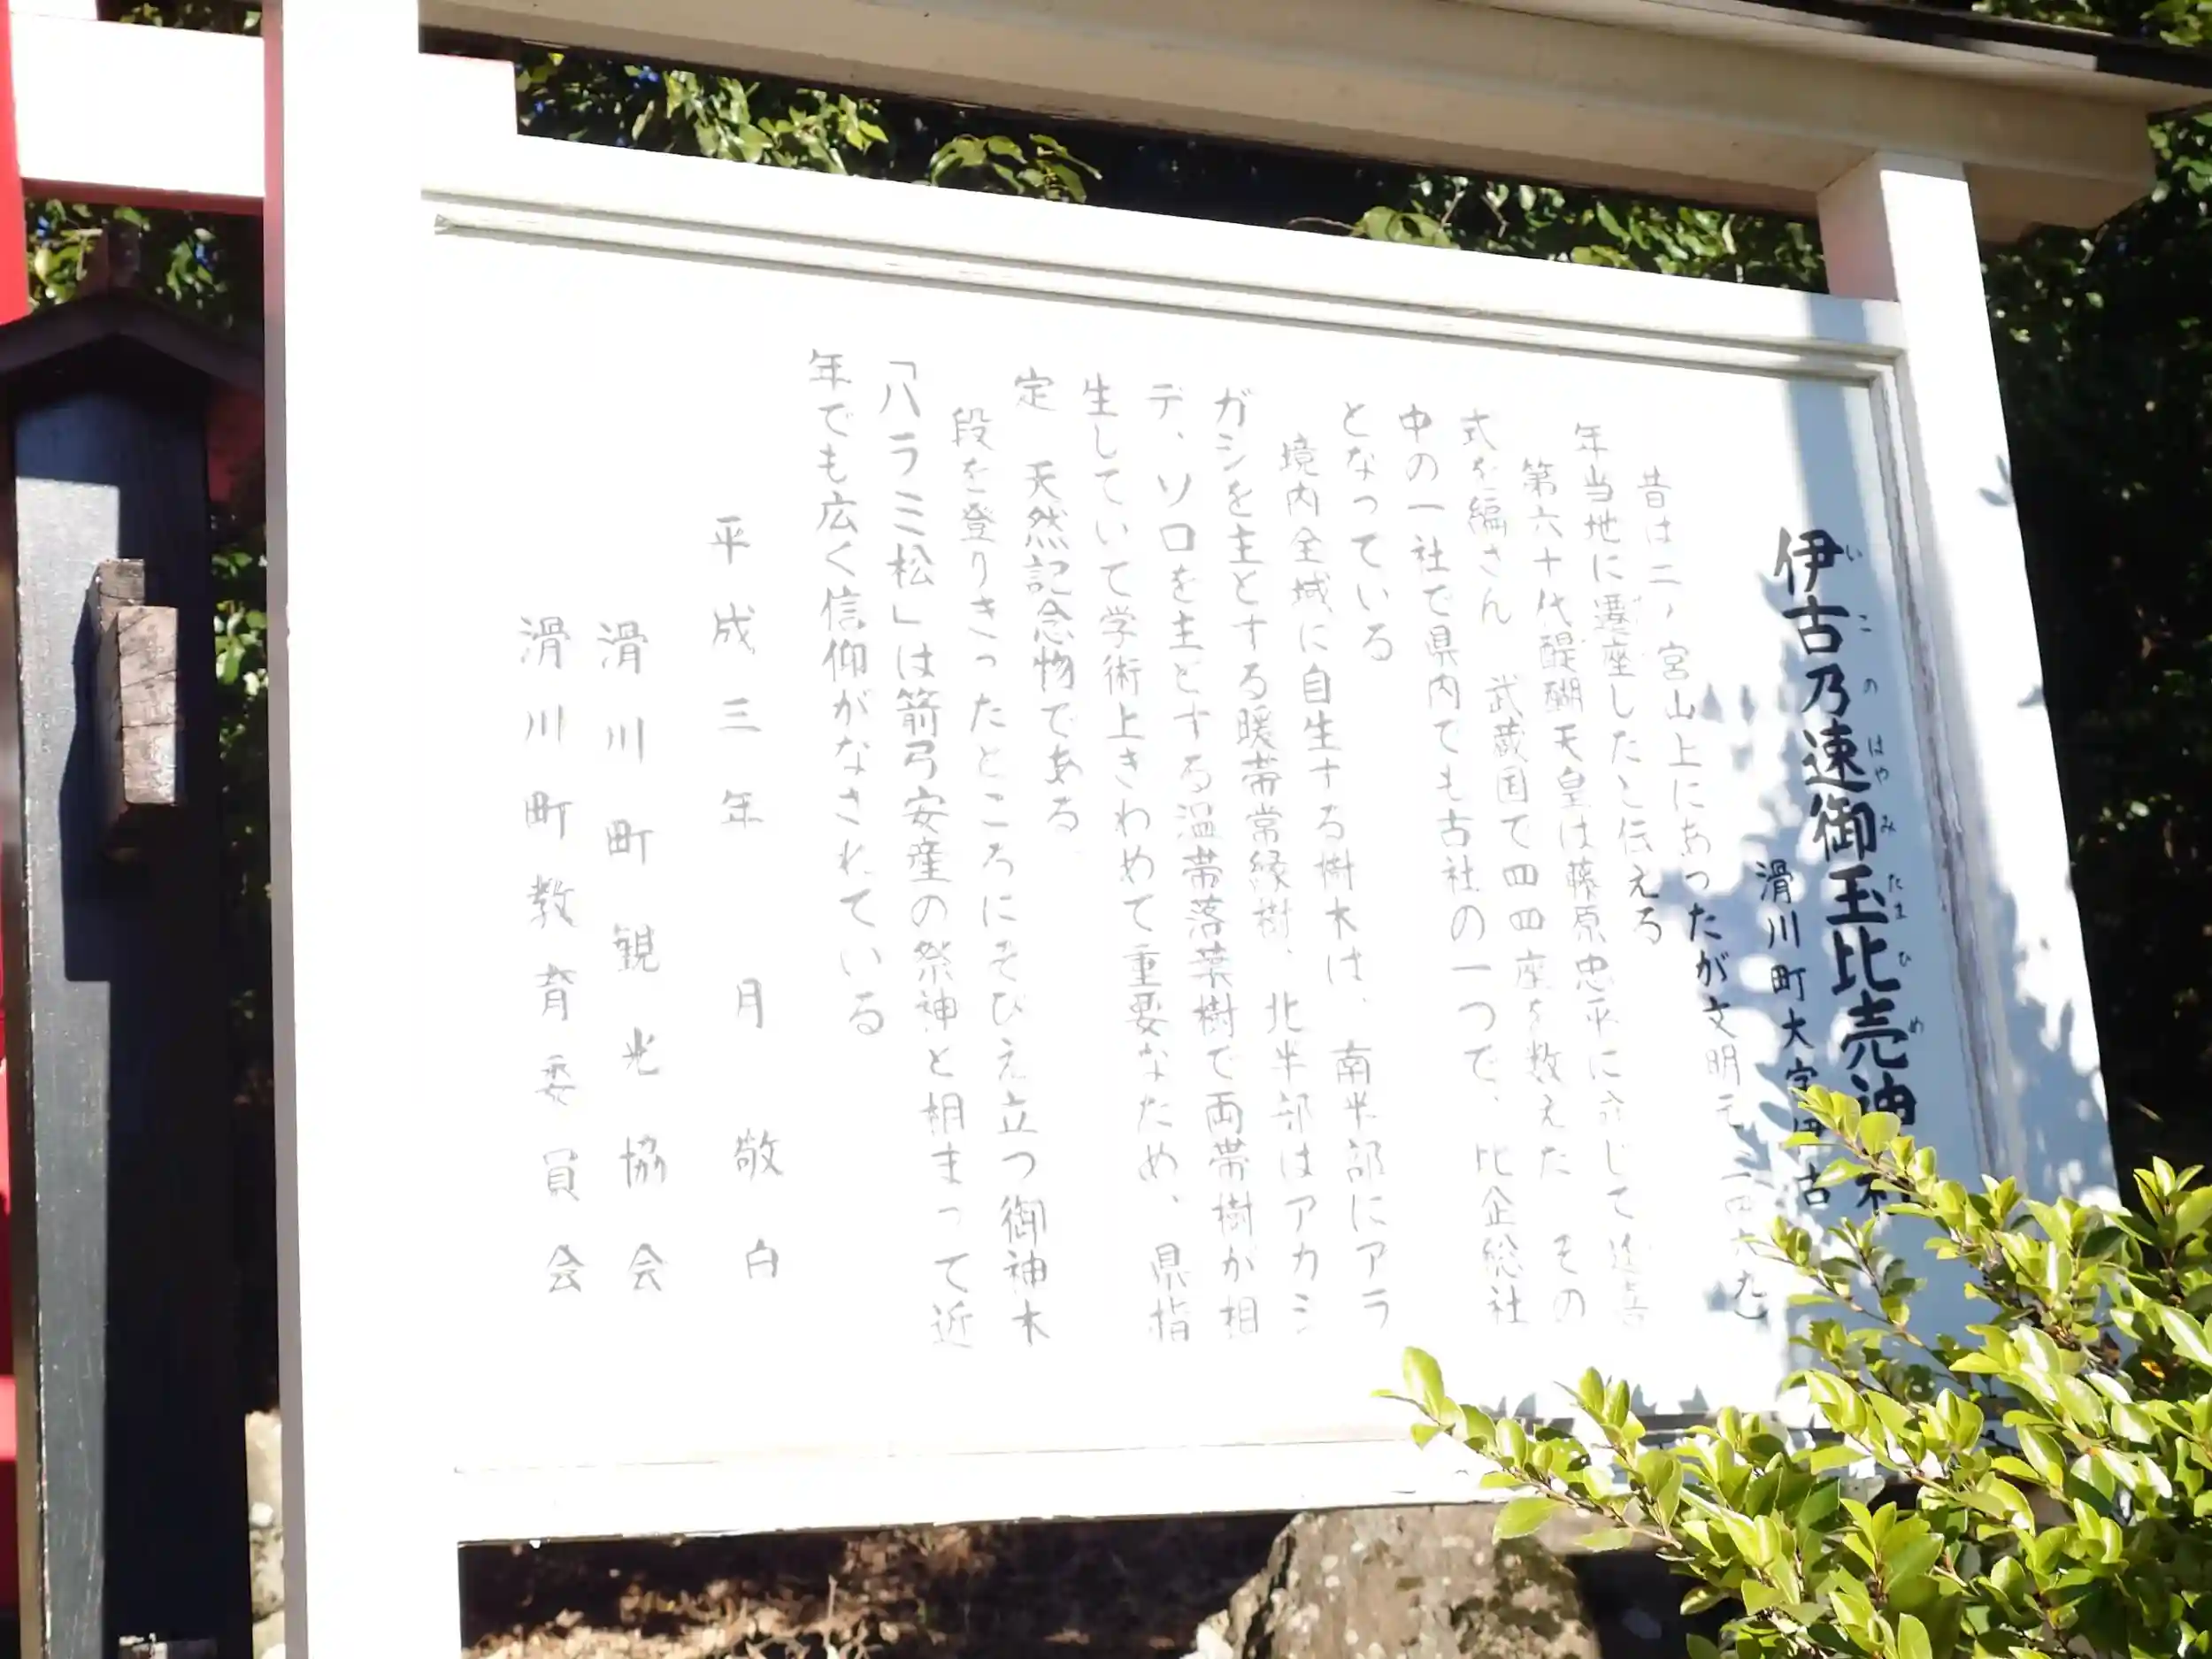 伊古乃速御玉比売神社
いこのはやみたまひめ
滑川町大字伊古
昔は二ノ宮山上にあったが文明元 一四六九
年当地に遷座したと伝える
第六十代醍醐天皇は藤原忠平に命じて延喜
式を編さん 武蔵国で四四座を数えた その
中の一社で県内でも古社の一つで、比企総社
となっている
境内全域に自生する樹木は、南半部にアラ
ガシを主とする暖帯常緑樹、北半部はアカシ
デ、ソロを主とする温帯落葉樹で両帯樹が相
生していて学術上きわめて重要なため、県指
定 天然記念物である
段を登りきったところにそびえ立つ御神木
「ハラミ松」は箭弓安産の祭神と相まって近
年でも広く信仰がなされている
平成三年 月 敬白
滑川町観光協会
滑川町教育委員会